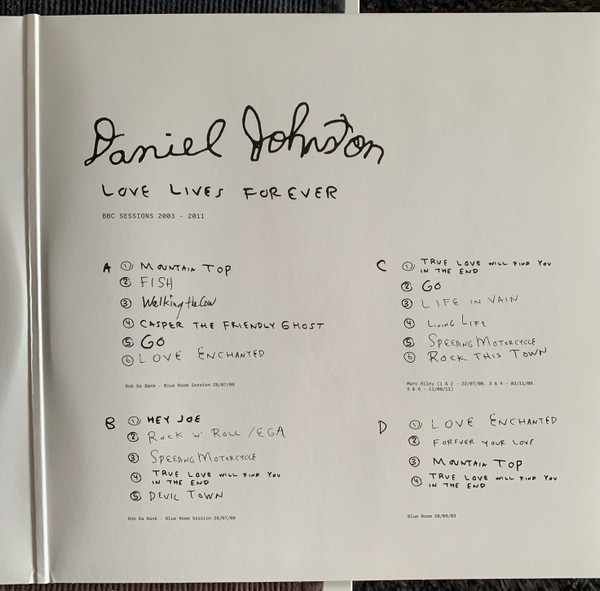 Daniel Johnston
LOVE LIVES FOREVER
BBC SESSIONS 2003 - 2011
A
1 MOUNTAIN TOP
2 FISH
3 Walking the Cow
4 CASPER THE FRIENDLY GHOST
5 GO
6 LOVE ENCHANTED
Rob Da Bank - Blue Room Session 26/07/08
B
1 HEY JOE
2 ROCK 'N' ROLL /EGA
3 SPEEDING MOTORCYCLE
4 TRUE LOVE WILL FIND YOU
IN THE END
5 DEVIL TOWN
Rob Da Bank - Blue Room Session 26/07/08
C
1 TRUE LOVE WILL FIND YOU
IN THE END
2 GO
3 LIFE IN VAIN
4 LIVING LIFE
5 SPEEDING MOTORCYCLE
6 ROCK THIS TOWN
Marc Riley (1 & 2 - 22/07/08. 3 & 4 - 03/11/09.
5 & 6 - 11/08/11)
D
1 LOVE ENCHANTED
2 FOREVER YOUR LOVE
3 MOUNTAIN TOP
4 TRUE LOVE WILL FIND YOU
IN THE END
Blue Room 20/09/03